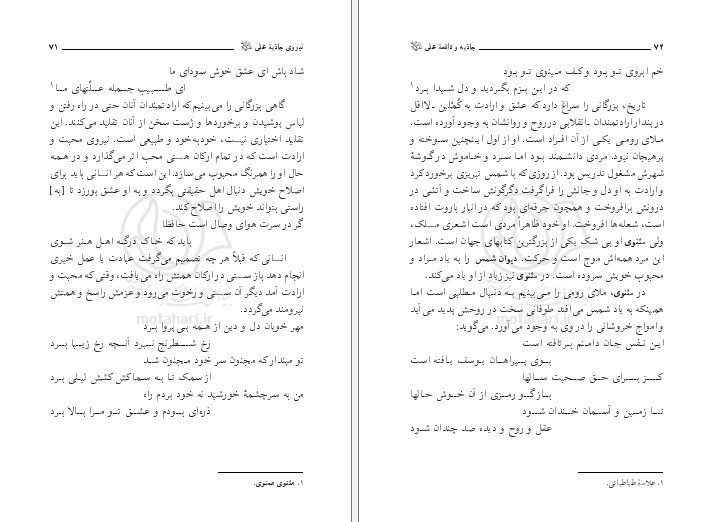 نیروی جاذبهٔ علی ۷۱
شاد باش ای عشق خوش سودای ما
ای طبیب جمله علّتهای ما۱
گاهی بزرگانی را می‌بینیم که ارادتمندان آنان حتی در راه رفتن و
لباس پوشیدن و برخوردها و ژست سخن از آنان تقلید می‌کنند. این
تقلید اختیاری نیست، خودبه‌خود و طبیعی است. نیروی محبت و
ارادت است که در تمام ارکان هستی محب اثر می‌گذارد و در همه
حال او را همرنگ محبوب می‌سازد. این است که هر انسانی باید برای
اصلاح خویش دنبال اهل حقیقتی بگردد و به او عشق بورزد تا [به]
راستی بتواند خویش را اصلاح کند.
گر در سرت هوای وصال است حافظا
باید که خاک درگه اهل هنر شوی
انسانی که قبلاً هر چه تصمیم می‌گرفت عبادت یا عمل خیری
انجام دهد باز سستی در ارکان همتش راه می‌یافت، وقتی که محبت و
ارادت آمد دیگر آن سستی و رخوت می‌رود و عزمش راسخ و همتش
نیرومند می‌گردد.
مهر خوبان دل و دین از همه بی پروا برد
رخ شطرنج نبرد آنچه رخ زیبا برد
تو مپندار که مجنون سر خود مجنون شد
از سمک تا به سماکش کشش لیلی برد
من به سرچشمهٔ خورشید نه خود بردم راه
ذره‌ای بودم و عشق تو مرا بالا برد
۱. مثنوی معنوی.
motahari.ir
جاذبه و دافعهٔ علی ۷۲
خم ابروی تو بود و کف مینوی تو بود
که در این بزم بگردید و دل شیدا برد۱
تاریخ، بزرگانی را سراغ دارد که عشق و ارادت به کُمَّلین ـ لااقل
در پندار ارادتمندان ـ انقلابی در روح و روانشان به وجود آورده است.
ملای رومی یکی از آن افراد است. او از اول اینچنین سوخته و
پرهیجان نبود. مردی دانشمند بود اما سرد و خاموش در گوشهٔ
شهرش مشغول تدریس بود. از روزی که با شمس تبریزی برخورد کرد
و ارادت به او دل و جانش را فراگرفت دگرگونش ساخت و آتشی در
درونش برافروخت و همچون جرقه‌ای بود که در انبار باروت افتاده
است، شعله‌ها افروخت. او خود ظاهراً مردی است اشعری مسلک،
ولی مثنوی او بی شک یکی از بزرگترین کتابهای جهان است. اشعار
این مرد همه‌اش موج است و حرکت. دیوان شمس را به یاد مراد و
محبوب خویش سروده است. در مثنوی نیز زیاد از او یاد می‌کند.
در مثنوی، ملای رومی را می‌بینیم به دنبال مطلبی است اما
همینکه به یاد شمس می‌افتد طوفانی سخت در روحش پدید می‌آید
و امواج خروشانی را در وی به وجود می‌آورد. می‌گوید:
این نفس جان دامنم برتافته است
بوی پیراهان یوسف یافته است
کز برای حق صحبت سالها
بازگو رمزی از آن خوش حالها
تا زمین و آسمان خندان شود
عقل و روح و دیده صد چندان شود
۱. علامهٔ طباطبائی.
motahari.ir